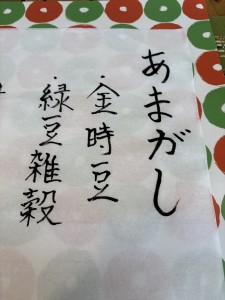 あまがし
・金時豆
・緑豆雑穀